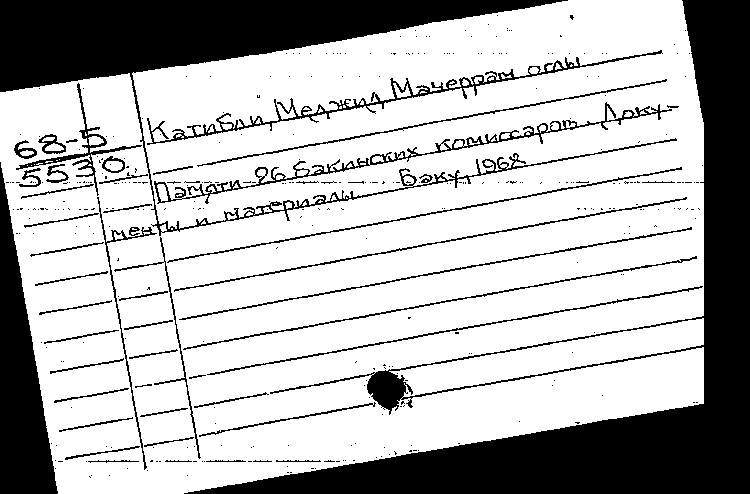 68-5
5530
Катибли, Меджид Мачеррам оглы
Памяти 26 бакинских комиссаров. Доку-
менты и материалы. Баку, 1968